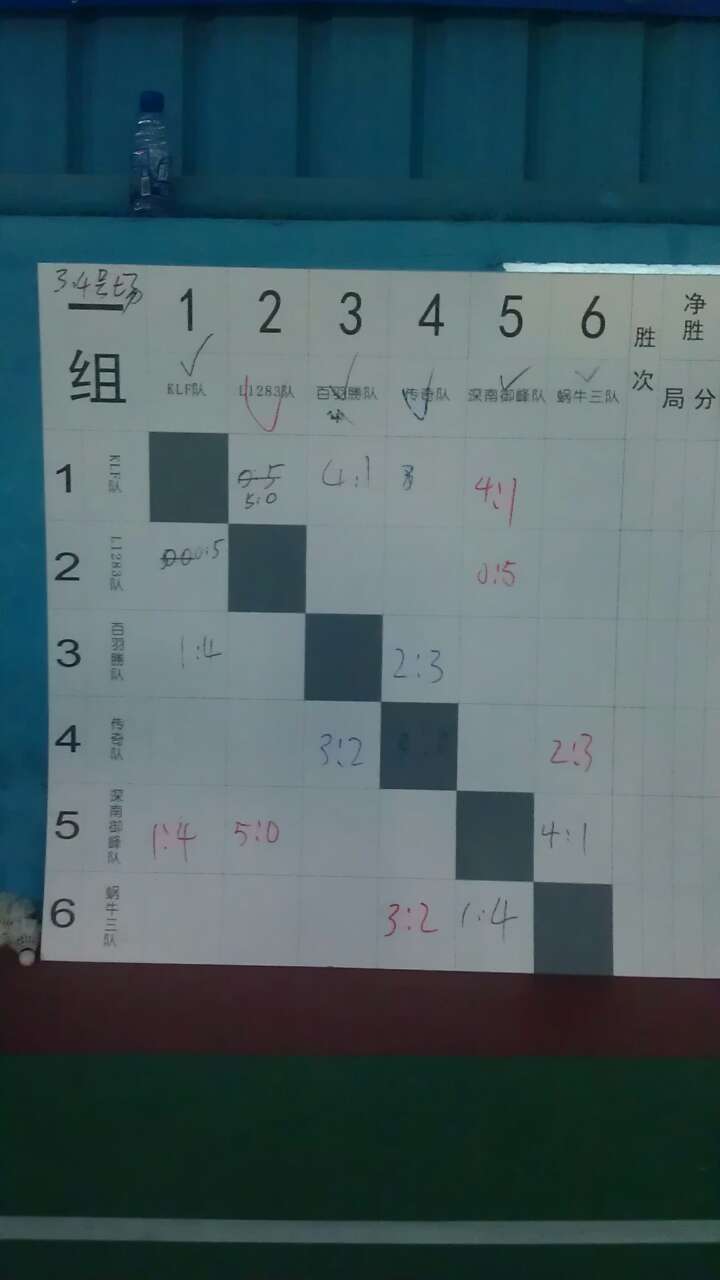 3.4号场
一组 1 2 3 4 5 6 胜次 净胜
局 分
KLF队 L1283队 百羽勝队 传奇队 深南御峰队 蜗牛三队
1 KLF队 0:5 5:0 4:1 4:1
2 L1283队 0:5 0:5
3 百羽勝队 1:4 2:3
4 传奇队 3:2 2:3
5 深南御峰队 1:4 5:0 4:1
6 蜗牛三队 3:2 1:4